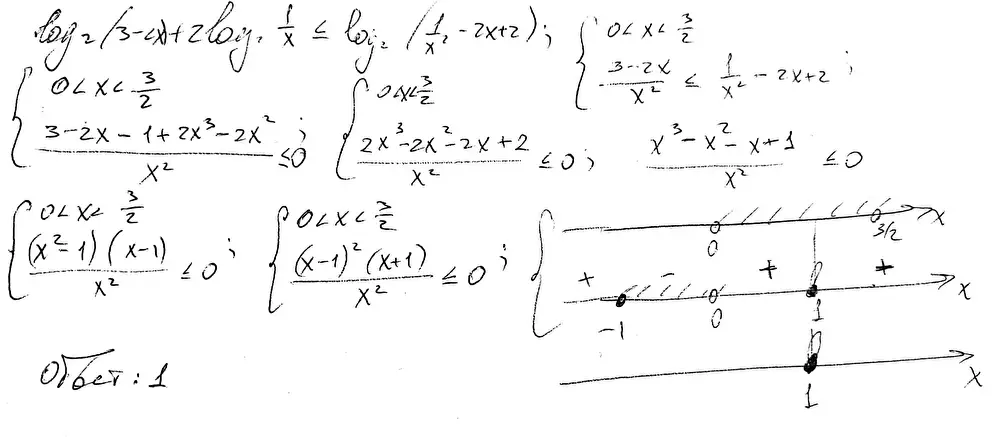 log₂(3-2x)+2log₂ 1/x ≤ log₂(1/x² - 2x+2); { 0<x<3/2
(3-2x)/x² ≤ 1/x² - 2x+2 ;
{ 0<x<3/2
(3-2x-1+2x³-2x²)/x² ≤0 ;
{ 0<x<3/2
(2x³-2x²-2x+2)/x² ≤0 ; (x³-x²-x+1)/x² ≤0
{ 0<x<3/2
(x²-1)(x-1)/x² ≤0 ;
{ 0<x<3/2
(x-1)²(x+1)/x² ≤0 ;
{ 0 3/2 x
+ - + +
-1 0 1 x
1 x
Ответ: 1